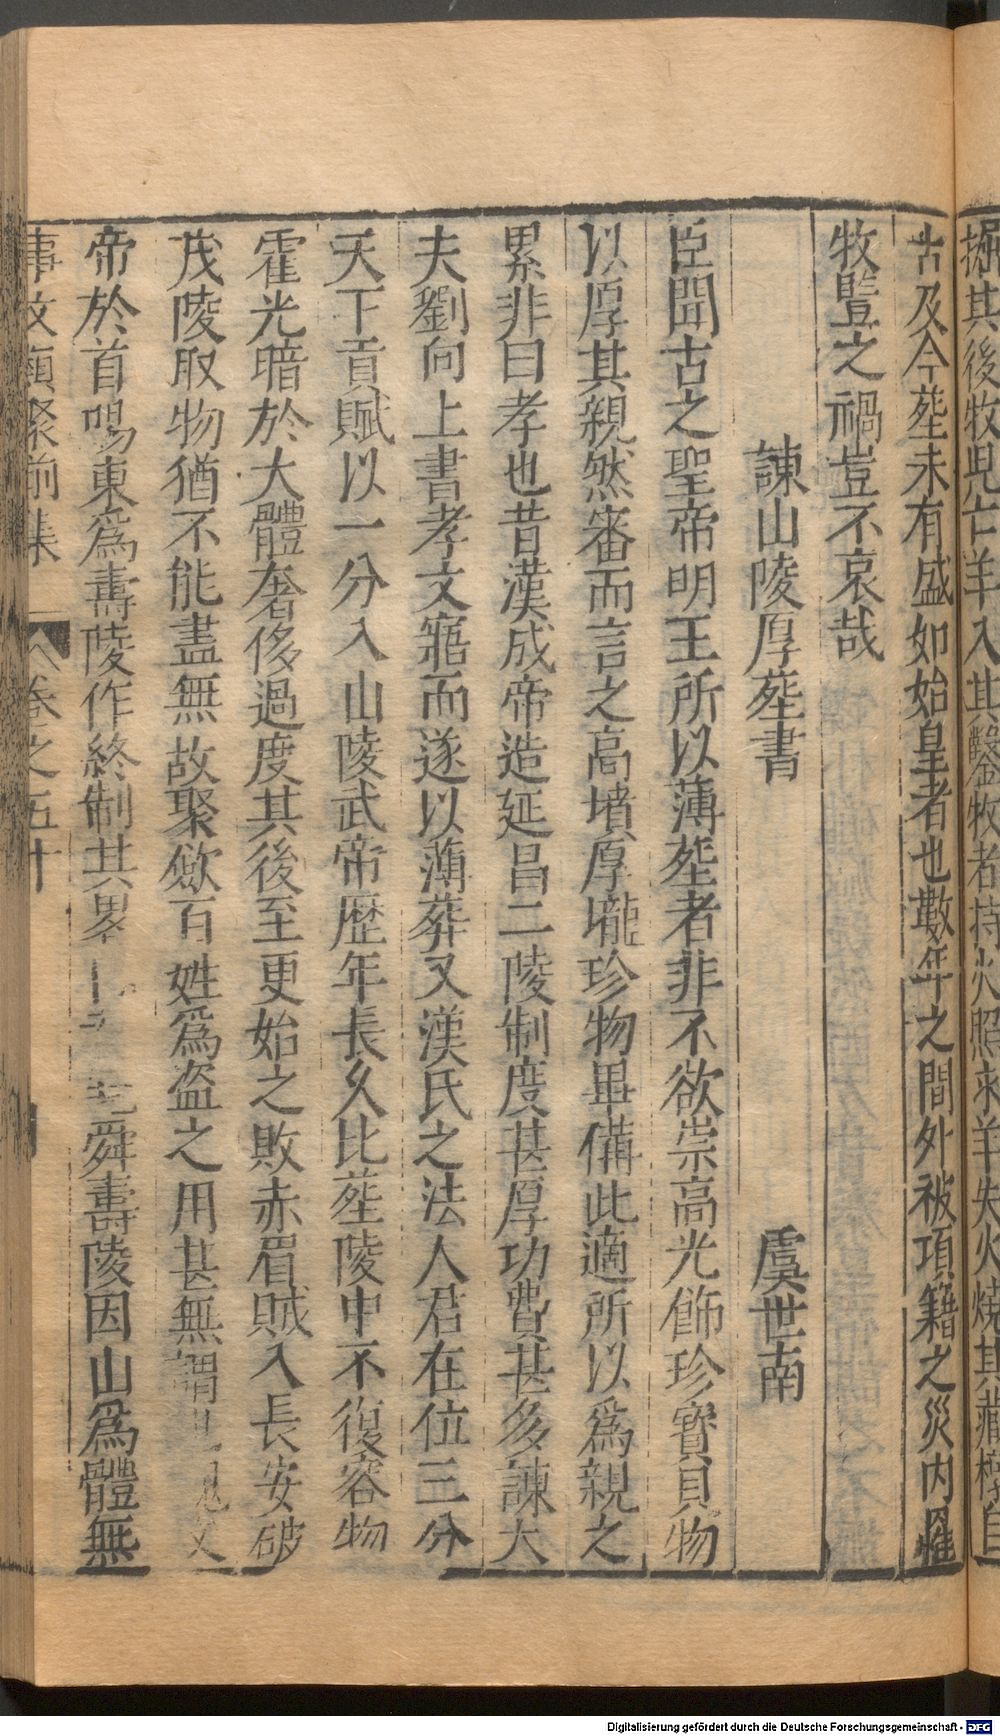 掘其後牧兒亡羊羊入其鑿牧者持火照求羊失火燒其藏槨自
古及今塟未有盛如始皇者也數年之間外被項籍之災内罹
牧豎之禍豈不哀哉
諫山陵厚塟書 虞世南
臣聞古之聖帝明王所以薄塟者非不欲崇高光飾珍寶具物
以厚其親然審而言之高墳厚壠珍物畢備此適所以爲親之
累非曰孝也昔漢成帝造延昌二陵制度甚厚功費甚多諫大
夫劉向上書孝文寤而遂以薄葬又漢氏之法人君在位三分
天下貢賦以一分入山陵武帝歷年長久比塟陵中不復容物
霍光暗於大體奢侈過度其後至更始之敗赤眉賊入長安破
茂陵取物猶不能盡無故聚歛百姓爲盗之用甚無謂 魏文
帝於首陽東爲壽陵作終制其畧 堯舜壽陵因山爲體無
事文類聚前集 卷之五十
Digitalisierung gefördert durch die Deutsche Forschungsgemeinschaft - DFG